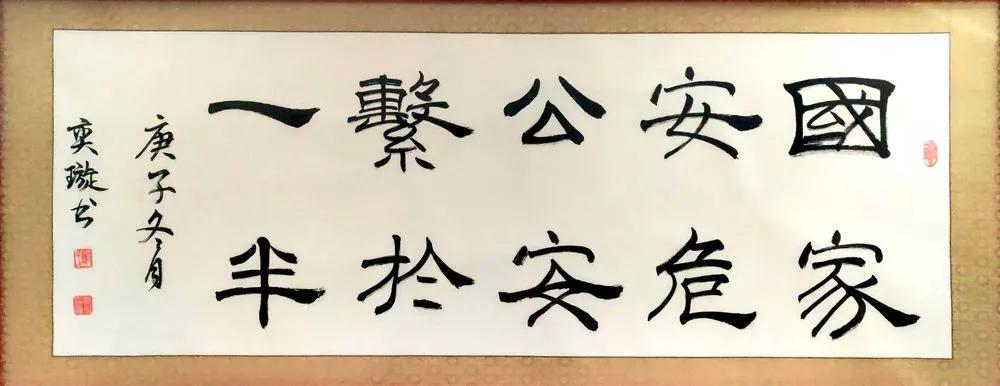 國家
安危
公安
繫於
一半
庚子冬月
奕璇书